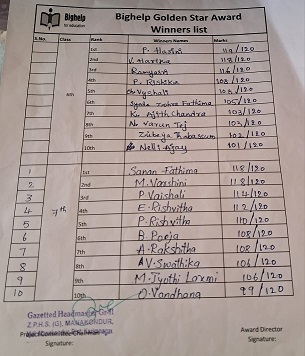 Bighelp
for education
Bighelp Golden Star Award
Winners list
S.No. Class Rank Winners Names Marks
6th
1st P. Harini 119/120
2nd V. Harika 118/120
3rd Ramyasri 116/120
4th P. Rishika 108/120
5th Vyshali 108/120
6th Syeda Zohra Fathima 105/120
7th K. Ajith Chandra 103/120
8th N. Varun Tej 103/120
9th Zubeya Thabassum 102/120
10th Nelli Ajay 101/120
7th
1 1st Sanan Fathima 118/120
2 2nd M. Varshini 118/120
3 3rd P. Vaishali 114/120
4 4th E. Rishvitha 112/120
5 5th P. Rishvitha 110/120
6 6th B. Pooja 108/120
7 7th A. Rakshitha 108/120
8 8th V. Swathika 106/120
9 9th M. Jyothi Laxmi 106/120
10 10th O. Vandhana 99/120
Gazetted Headmaster Gr-II
Z.P.H.S. (G), MANAKONDUR,
Signature:
Award Director
Signature: